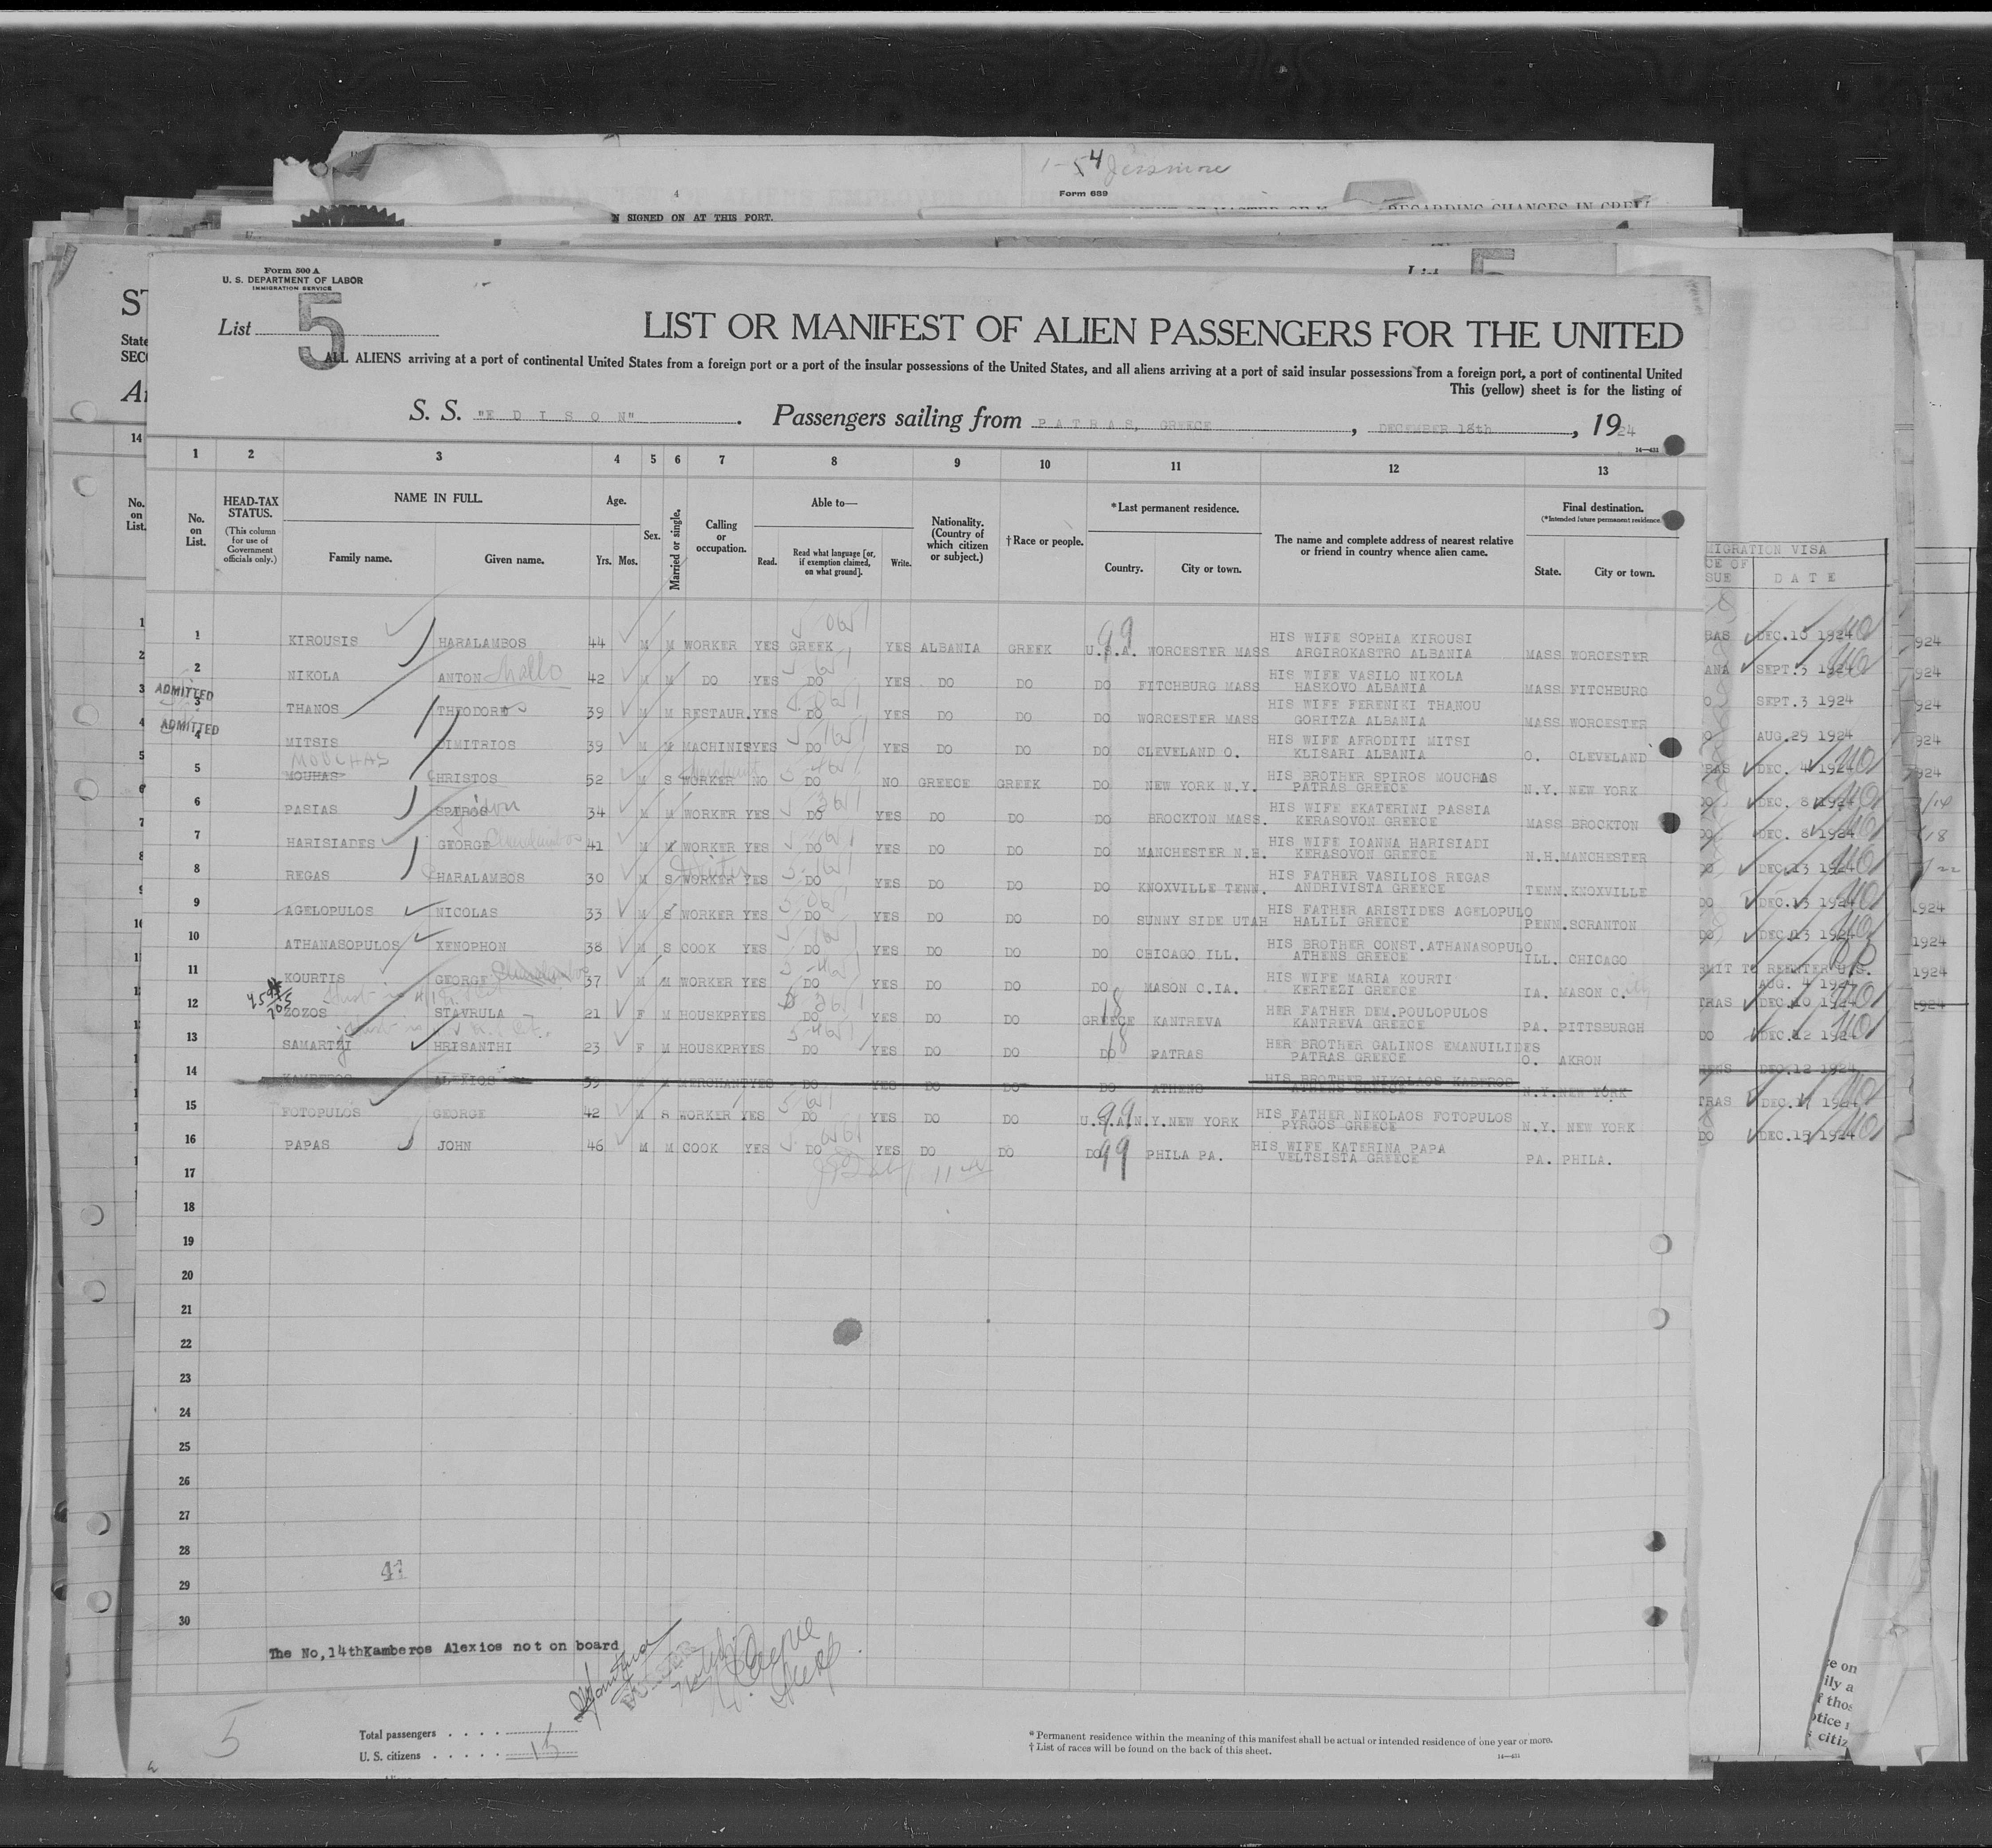 1-54 Jessmore
4
Form 689
N SIGNED ON AT THIS PORT.
REGARDING CHANGES IN CREW
Form 500 A
U. S. DEPARTMENT OF LABOR
IMMIGRATION SERVICE
List 5
LIST OR MANIFEST OF ALIEN PASSENGERS FOR THE UNITED
ALL ALIENS arriving at a port of continental United States from a foreign port or a port of the insular possessions of the United States, and all aliens arriving at a port of said insular possessions from a foreign port, a port of continental United
This (yellow) sheet is for the listing of
S. S. "E D I S O N". Passengers sailing from P A T R A S, GREECE, DECEMBER 18th, 1924
14—431
1 2 3 4 5 6 7 8 9 10 11 12 13
No. on List. HEAD-TAX STATUS. (This column for use of Government officials only.) NAME IN FULL. Family name. Given name. Age. Yrs. Mos. Sex. Married or single. Calling or occupation. Able to— Read. Read what language [or, if exemption claimed, on what ground]. Write. Nationality. (Country of which citizen or subject.) †Race or people. *Last permanent residence. Country. City or town. The name and complete address of nearest relative or friend in country whence alien came. Final destination. (*Intended future permanent residence) State. City or town.
MIGRATION VISA
DATE
1 KIROUSIS HARALAMBOS 44 M M WORKER YES GREEK YES ALBANIA GREEK U.S.A. 99 WORCESTER MASS HIS WIFE SOPHIA KIROUSI ARGIROKASTRO ALBANIA MASS WORCESTER DEC.10 1924
2 NIKOLA ANTON 42 M M DO YES DO YES DO DO DO FITCHBURG MASS HIS WIFE VASILO NIKOLA HASKOVO ALBANIA MASS FITCHBURG SEPT.5 1924
ADMITTED 3 THANOS THEODOROS 39 M M RESTAUR. YES DO YES DO DO DO WORCESTER MASS HIS WIFE FERENIKI THANOU GORITZA ALBANIA MASS WORCESTER SEPT.3 1924
ADMITTED 4 MITSIS DIMITRIOS 39 M M MACHINIS YES DO YES DO DO DO CLEVELAND O. HIS WIFE AFRODITI MITSI KLISARI ALBANIA O. CLEVELAND AUG.29 1924
MOUCHAS
5 MOUHAS CHRISTOS 52 M S WORKER NO DO NO GREECE GREEK DO NEW YORK N.Y. HIS BROTHER SPIROS MOUCHAS PATRAS GREECE N.Y. NEW YORK DEC. 4 1924
6 PASIAS SPIROS 34 M M WORKER YES DO YES DO DO DO BROCKTON MASS. HIS WIFE EKATERINI PASSIA KERASOVON GREECE MASS BROCKTON DEC. 8 1924
7 HARISIADES GEORGE 41 M M WORKER YES DO YES DO DO DO MANCHESTER N.H. HIS WIFE IOANNA HARISIADI KERASOVON GREECE N.H. MANCHESTER DEC. 8 1924
8 REGAS CHARALAMBOS 30 M S WORKER YES DO YES DO DO DO KNOXVILLE TENN. HIS FATHER VASILIOS REGAS ANDRIVISTA GREECE TENN. KNOXVILLE DEC.13 1924
9 AGELOPULOS NICOLAS 33 M S WORKER YES DO YES DO DO DO SUNNY SIDE UTAH HIS FATHER ARISTIDES AGELOPULO HALILI GREECE PENN. SCRANTON DEC.13 1924
10 ATHANASOPULOS XENOPHON 38 M S COOK YES DO YES DO DO DO CHICAGO ILL. HIS BROTHER CONST.ATHANASOPULO ATHENS GREECE ILL. CHICAGO DEC.13 1924
11 KOURTIS GEORGE 37 M M WORKER YES DO YES DO DO DO MASON C.IA. HIS WIFE MARIA KOURTI KERTEZI GREECE IA. MASON C. MIT TO REENTER U.S. AUG. 4 1924
12 ZOZOS STAVRULA 21 F M HOUSKPR YES DO YES DO DO GREECE 18 KANTREVA HER FATHER DEM.POULOPULOS KANTREVA GREECE PA. PITTSBURGH TRAS DEC.10 1924
13 SAMARTZI HRISANTHI 23 F M HOUSKPR YES DO YES DO DO DO 18 PATRAS HER BROTHER GALINOS EMANUILIDES PATRAS GREECE O. AKRON DEC.12 1924
14 KAMBEROS ALEXIOS 39 M M MERCHANT YES DO YES DO DO DO ATHENS HIS BROTHER NIKOLAOS KABEROS ATHENS GREECE N.Y. NEW YORK DEC.12 1924
15 FOTOPULOS GEORGE 42 M S WORKER YES DO YES DO DO U.S.A. 99 N.Y. NEW YORK HIS FATHER NIKOLAOS FOTOPULOS PYRGOS GREECE N.Y. NEW YORK TRAS DEC.17 1924
16 PAPAS JOHN 46 M M COOK YES DO YES DO DO DO 99 PHILA PA. HIS WIFE KATERINA PAPA VELTSISTA GREECE PA. PHILA. DO DEC.15 1924
17
18
19
20
21
22
23
24
25
26
27
28
29
30
The No,14thKamberos Alexios not on board
5
Total passengers
U. S. citizens 15
*Permanent residence within the meaning of this manifest shall be actual or intended residence of one year or more.
†List of races will be found on the back of this sheet.
14—431